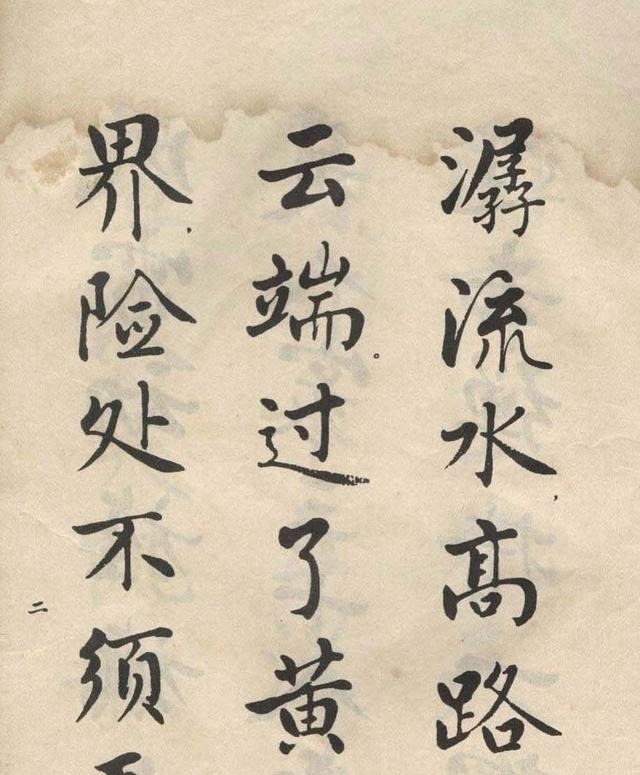 潺流水，高路
云端。过了黄
界，险处不须
二